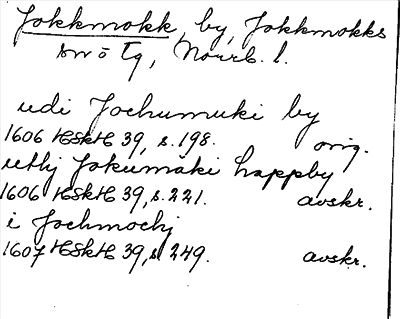 Jokkmokk, by, Jokkmokks
sn o tg, Norrb. l.
udi Jochumuki by
1606 HSkH 39, s. 198. orig.
uthj Jokumaki happby
1606 HSkH 39, s. 221. avskr.
i Jochmochj
1607 HSkH 39, s. 249. avskr.